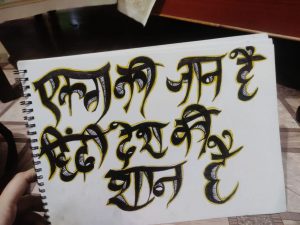 एकता की जान है
हिंदी देश की
शान है